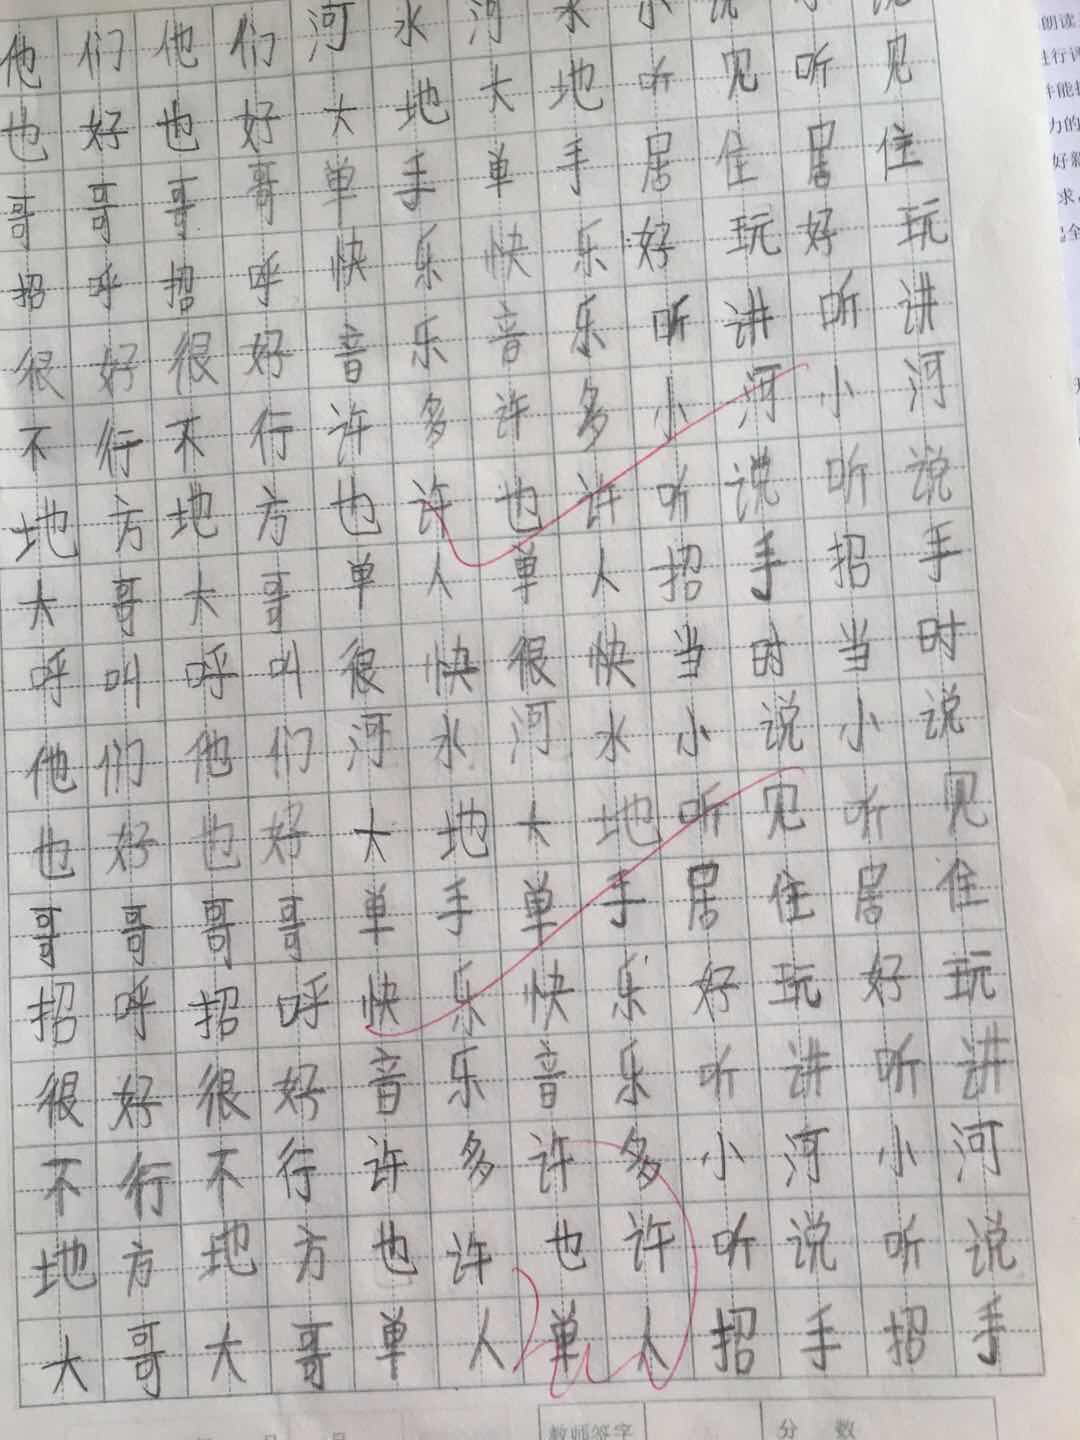 他们他们河水河水小说小说
也好也好大地大地听见听见
哥哥哥哥单手单手居住居住
招呼招呼快乐快乐好玩好玩
很好很好音乐音乐听讲听讲
不行不行许多许多小河小河
地方地方也许也许听说听说
大哥大哥单人单人招手招手
呼叫呼叫很快很快当时当时
他们他们河水河水小说小说
也好也好大地大地听见听见
哥哥哥哥单手单手居住居住
招呼招呼快乐快乐好玩好玩
很好很好音乐音乐听讲听讲
不行不行许多许多小河小河
地方地方也许也许听说听说
大哥大哥单人单人招手招手
教师签字 分数
朗读
进行评
力的